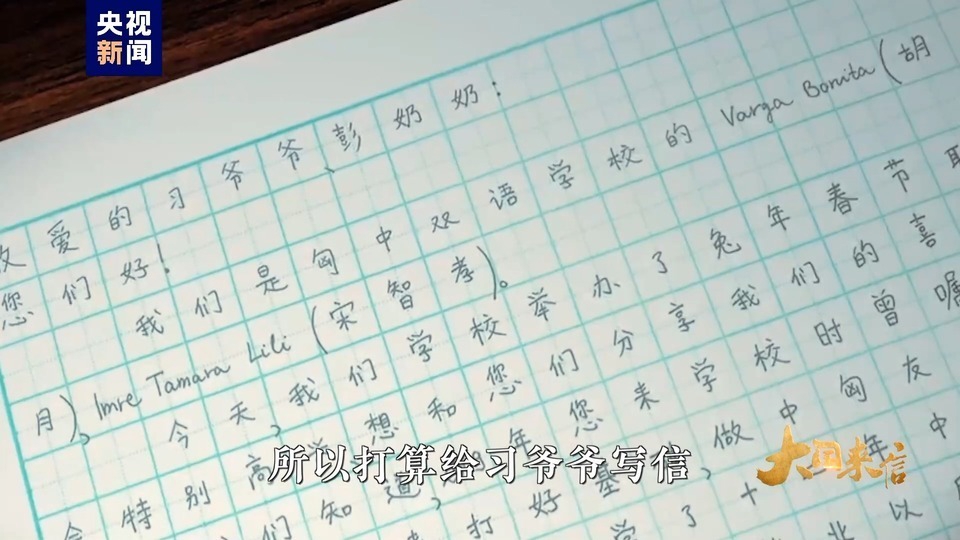 央视
新闻
爱的习爷爷、彭奶奶：
您们好！
我们是匈中双语学校的 Varga Bonita (胡
月)、Imre Tamara Lili (宋智孝)。
今天，我们学校举办了兔年春节
特别高 想和您们分享我们的喜
们知道， 年您来学校时曾嘱
打好基 ，做中匈友
学了十 年中
北以
所以打算给习爷爷写信
大国来信